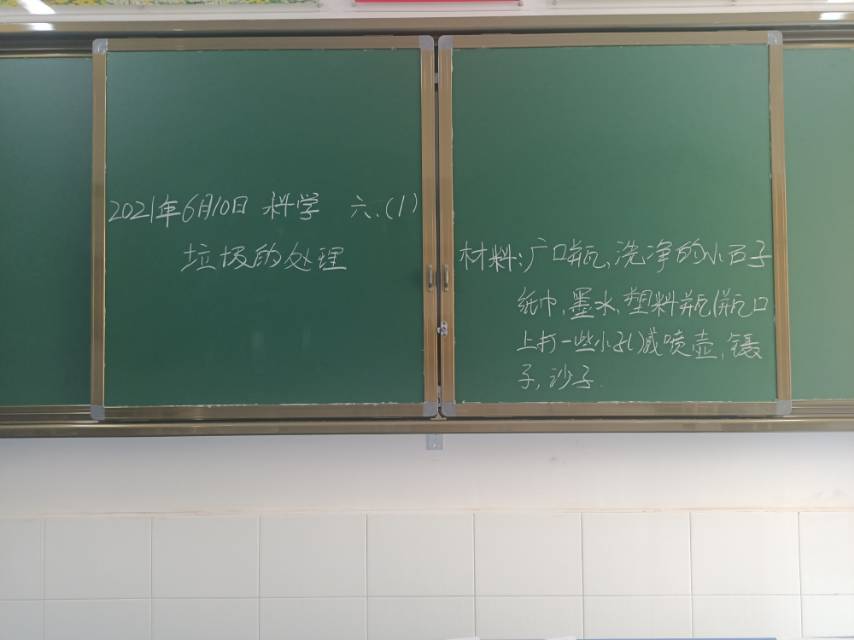 2021年6月10日 科学 六.(1)
垃圾的处理
材料:广口瓶、洗净的小石子
纸巾、墨水、塑料瓶(瓶口
上打一些小孔)或喷壶、镊
子,沙子.